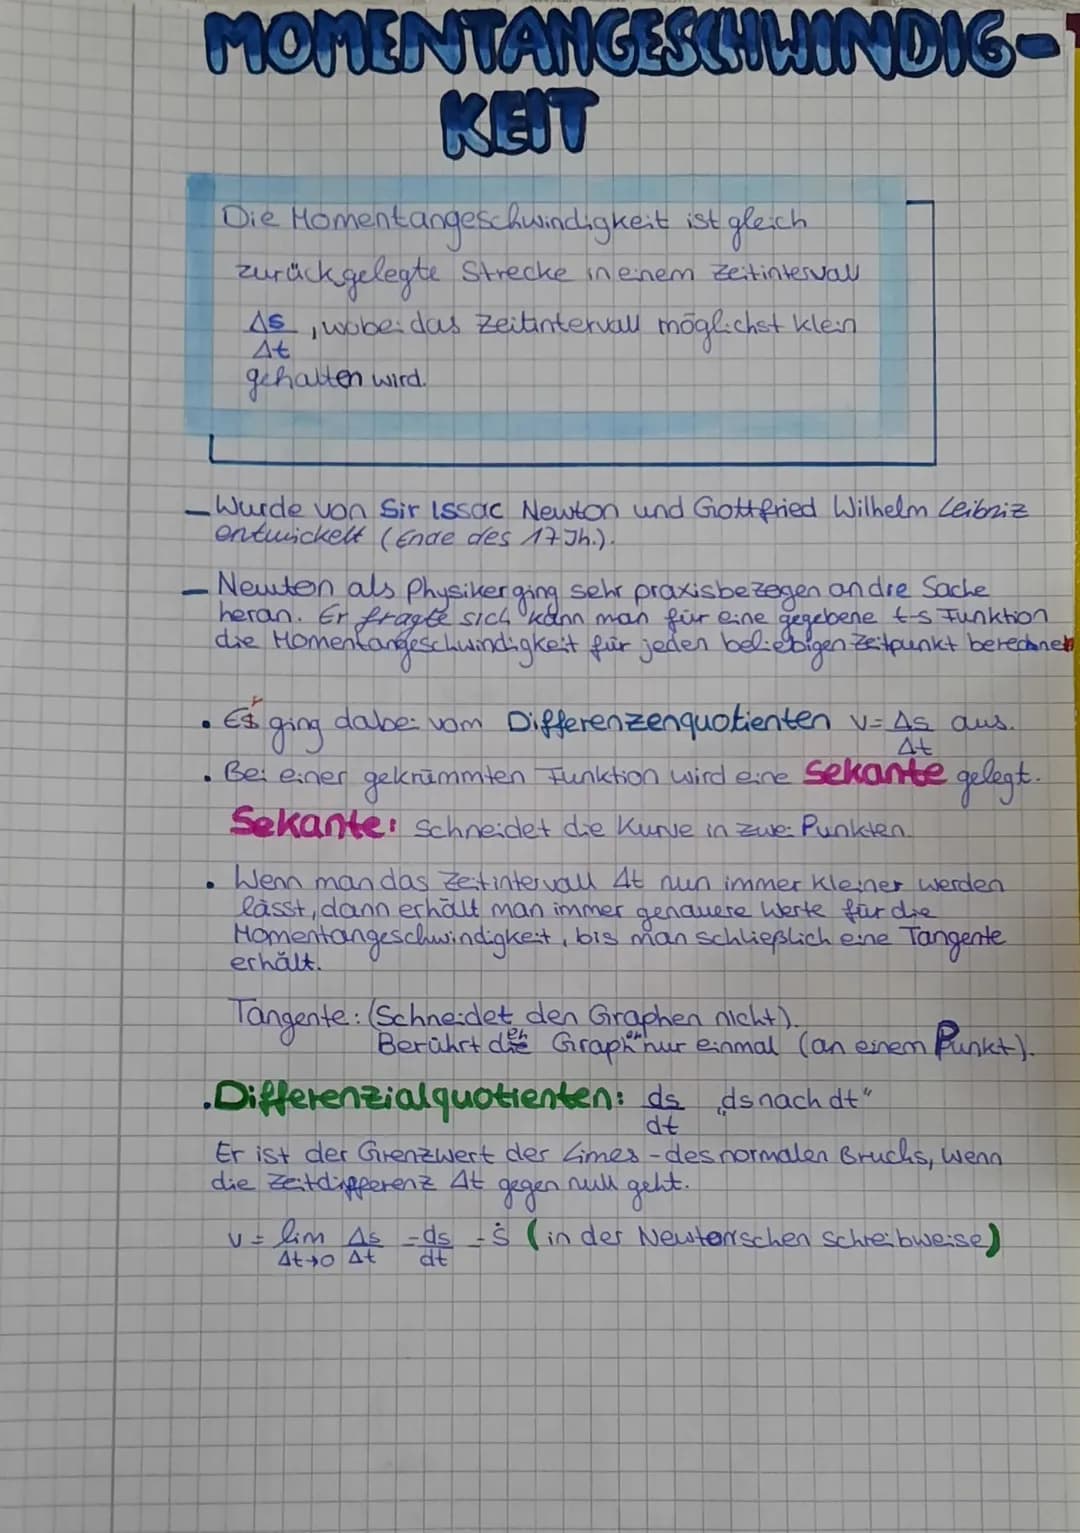 MOMENTANGESCHWINDIG-
KEIT
Die Momentangeschwindigkeit ist gleich
zurückgelegte Strecke in einem Zeitintervall
Δs/Δt, wobei das Zeitintervall möglichst klein
gehalten wird.
– Wurde von Sir Issac Newton und Gottfried Wilhelm Leibniz
entwickelt (Ende des 17 Jh.).
– Newton als Physiker ging sehr praxisbezogen an die Sache
heran. Er fragte sich kann man für eine gegebene t-s Funktion
die Momentangeschwindigkeit für jeden beliebigen Zeitpunkt berechnen
• Er ging dabei vom Differenzenquotienten v = Δs/Δt aus.
• Bei einer gekrümmten Funktion wird eine Sekante gelegt.
Sekante: Schneidet die Kurve in zwei Punkten.
• Wenn man das Zeitintervall Δt nun immer kleiner werden
lässt, dann erhält man immer genauere Werte für die
Momentangeschwindigkeit, bis man schließlich eine Tangente
erhält.
Tangente: (Schneidet den Graphen nicht).
Berührt den Graphen nur einmal (an einem Punkt).
• Differenzialquotienten: ds/dt „ds nach dt“
Er ist der Grenzwert der Limes - des normalen Bruchs, wenn
die Zeitdifferenz Δt gegen null geht.
v = lim Δt→0 Δs/Δt = ds/dt = ṡ (in der Newtonschen Schreibweise)